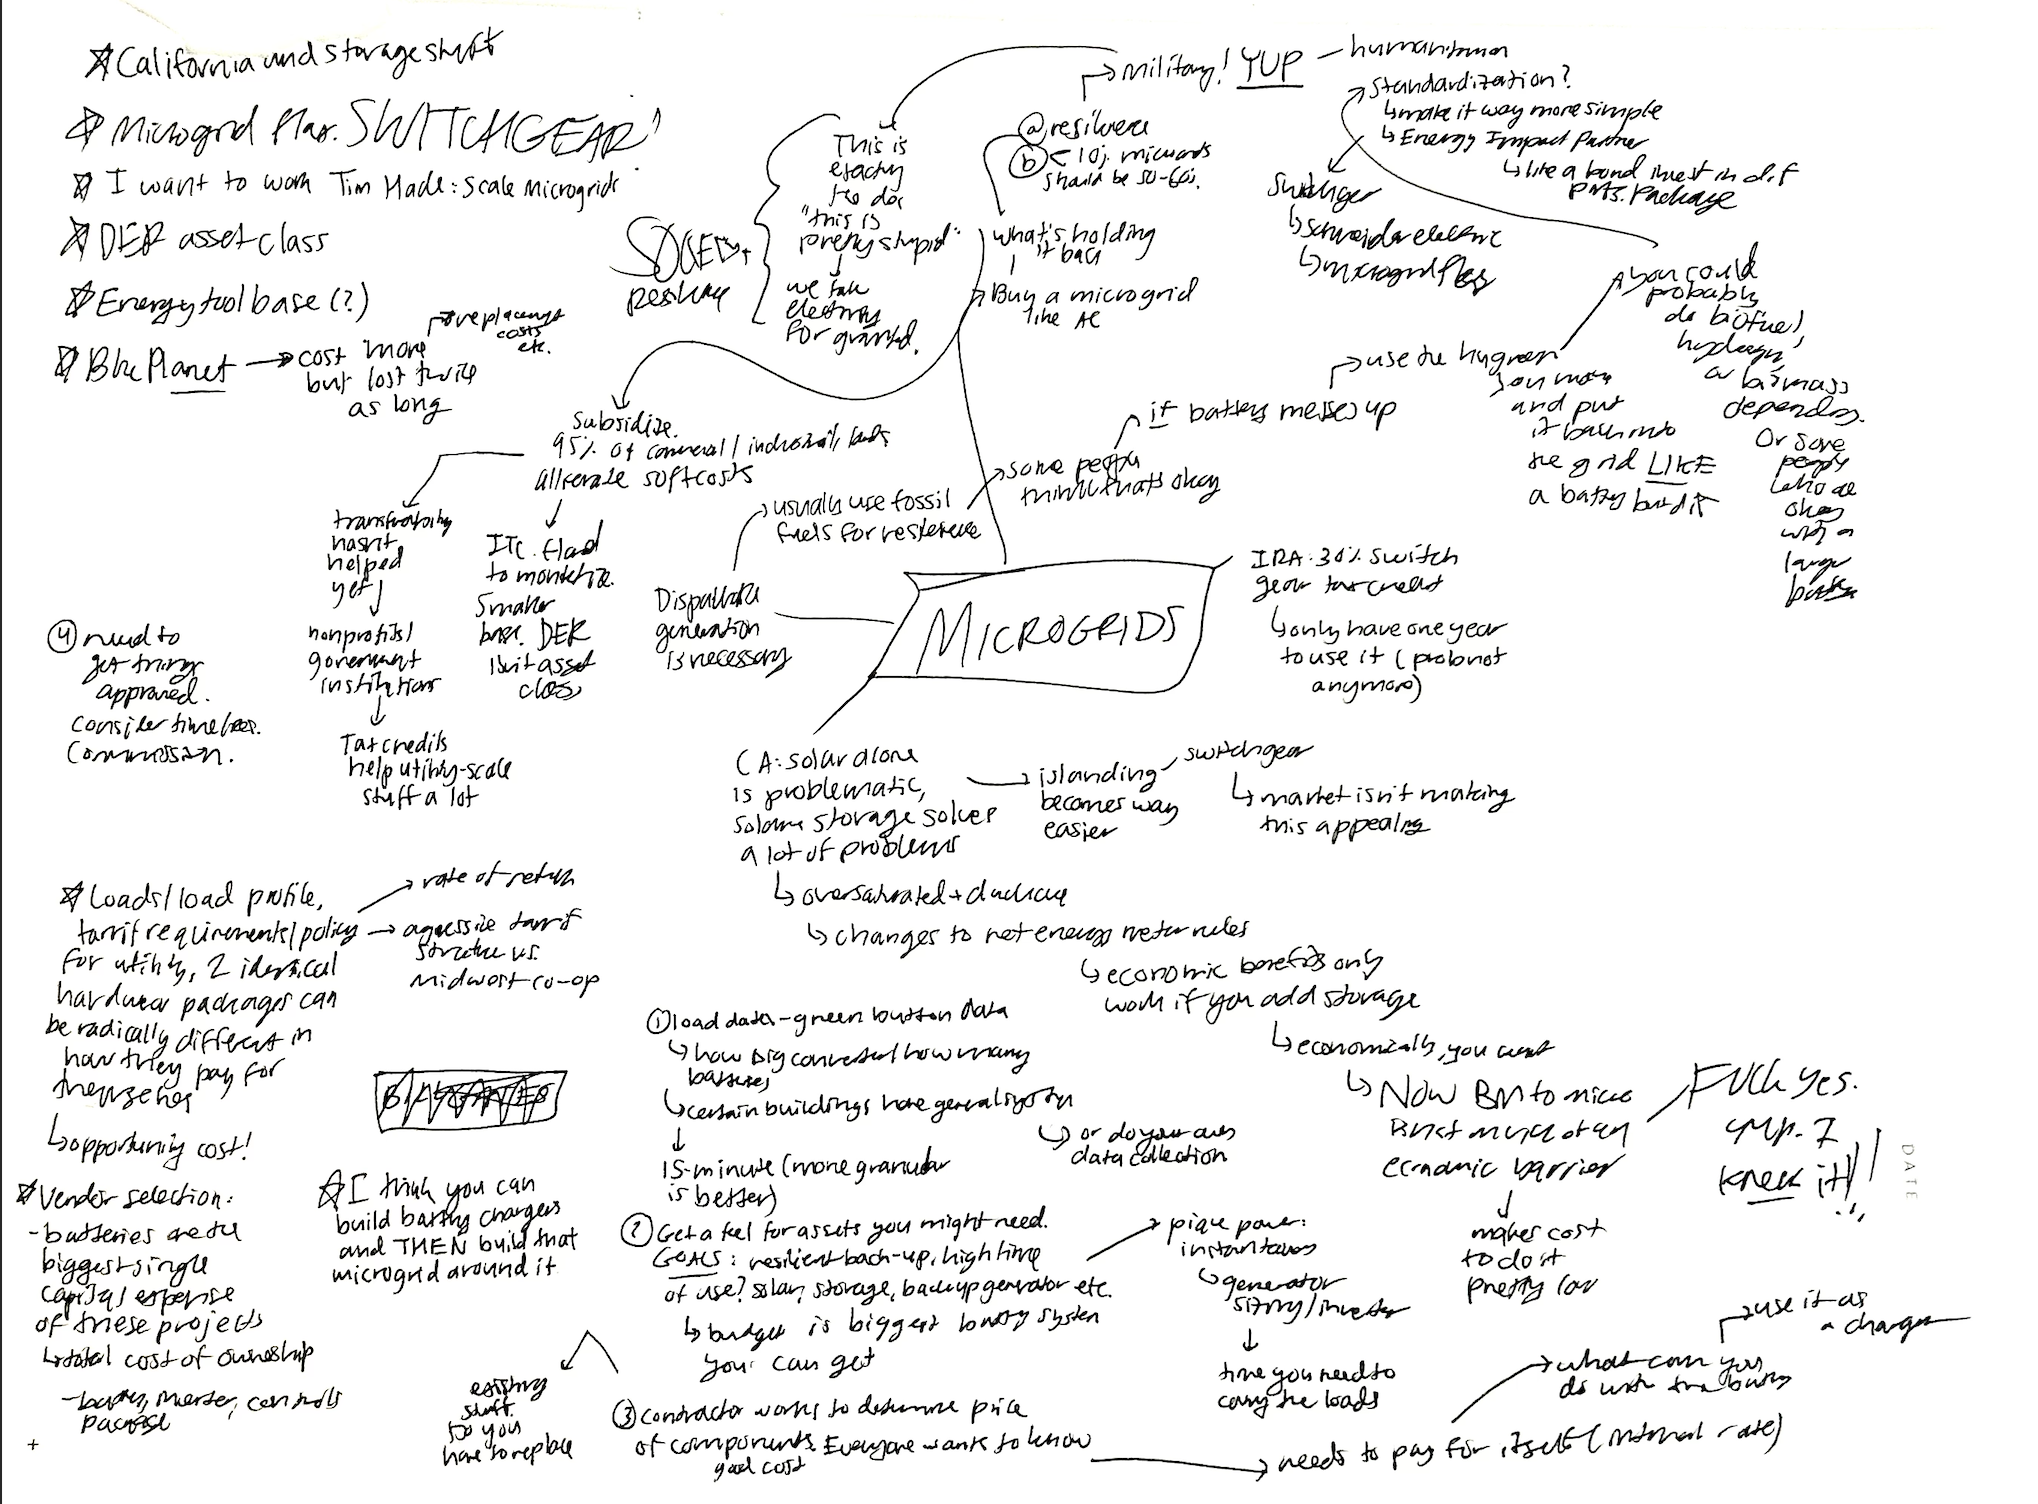 ☆ California and storage stuff
☆ Microgrid Plas. SWITCHGEAR!
☆ I want to work Tim Hade: Scale Microgrids
☆ DER asset class
☆ Energy tool base (?)
☆ Blue Planet → cost more
but lost twice
as long
↱ replacement
costs
etc.
Subsidize.
95% of commercial/industrial
alleviate soft costs
hasn't
helped
yet
nonprofits/
government
institutions
Tax credits
help utility-scale
stuff a lot
ITC. Hard
to monetize.
Smaller
base. DER
isn't asset
class
④ need to
get things
approved.
consider timelines.
Commission.
This is
exactly
the doc
"this is
pretty stupid"
we take
electricity
for granted.
military! YUP
ⓐ resilience
ⓑ <10%. microgrids
should be 50-60%.
what's holding
it back
Buy a microgrid
like AC
Standardization?
↳ make it way more simple
↳ Energy Impact Partner
↳ like a bond invest in dif
pkts. package
switchgear
↳ schneider electric
you could
probably
do biofuel,
hydrogen,
or biomass
depends.
Or some
people
who are
okay
with a
large
battery
use the hydrogen
and put
it back into
the grid LIKE
a battery
if battery messes up
some people
think that's okay
usually use fossil
fuels for resilience
Dispatchable
generation
is necessary
MICROGRIDS
IRA: 30% switch
gear tax credit
↳ only have one year
to use it (prob not
anymore)
CA: solar alone
is problematic,
solar storage solves
a lot of problems
islanding
becomes way
easier
switchgear
↳ market isn't making
this appealing
↳ oversaturated +
↳ changes to net energy meter rules
↳ economic benefits only
work if you add storage
↳ economically, you want
↳ Now
economic barrier
FUCK yes.
yup. I
knew it!!!
makes cost
to do it
pretty low
☆ Loads/load profile,
tarrif requirements/policy
for utility, 2 identical
hardware packages can
be radically different in
how they pay for
themselves
↳ opportunity cost!
→ rate of return
→ agressive tarrif
structure vs.
midwest co-op
☆ Vendor selection:
- batteries are the
biggest single
capital expense
of these projects
↳ total cost of ownership
- battery, inverter, controls
package
☆ I think you can
build battery chargers
and THEN build that
microgrid around it
① load data - green button data
↳ how big converter/how many
batteries
↳ certain buildings have
↳ or do your own
data collection
15-minute (more granular
is better)
② Get a feel for assets you might need.
GOALS: resilient back-up, high time
of use? solar, storage, backup generator etc.
↳ budget is biggest battery system
you can get
pique power:
instantaneous
↳ generator
sizing/inverter
time you need to
carry the loads
③ contractor works to determine price
of components. Everyone wants to know
good cost
existing
stuff.
so you
have to replace
needs to pay for itself (internal rate)
what can you
do with the battery
use it as
a charger
DATE